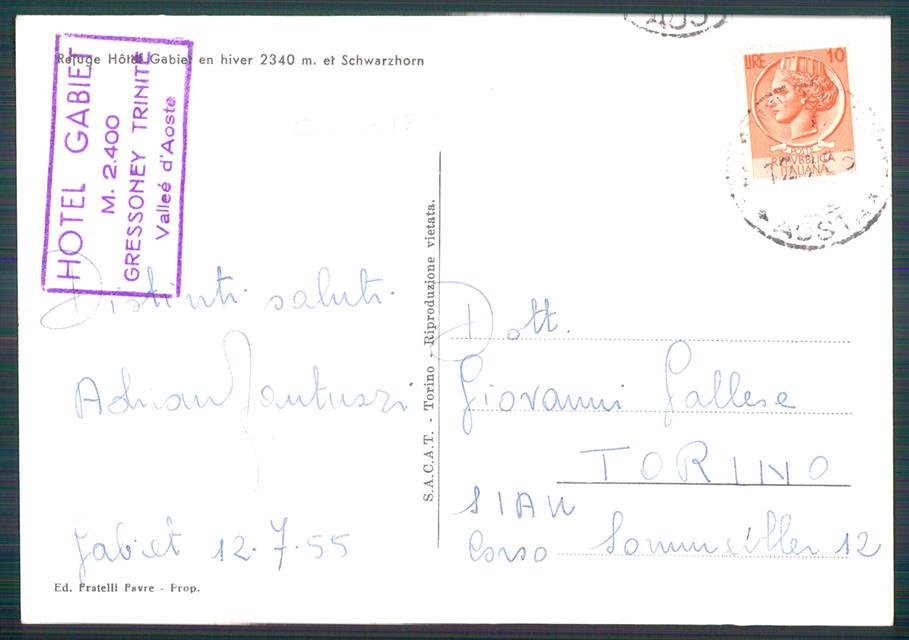 Refuge Hôtel Gabiet en hiver 2340 m. et Schwarzhorn
HOTEL GABIET
M. 2.400
GRESSONEY TRINITÈ
Valleé d'Aoste
LIRE 10
POSTE
REPVBBLICA
ITALIANA
AOSTA
Distinti saluti.
Adriana Fantuzzi
Gabiet 12.7.55
Ed. Fratelli Favre - Prop.
S.A.C.A.T. - Torino - Riproduzione vietata.
Dott.
Giovanni Gallese
TORINO
SIAN
Corso Sommeiller 12